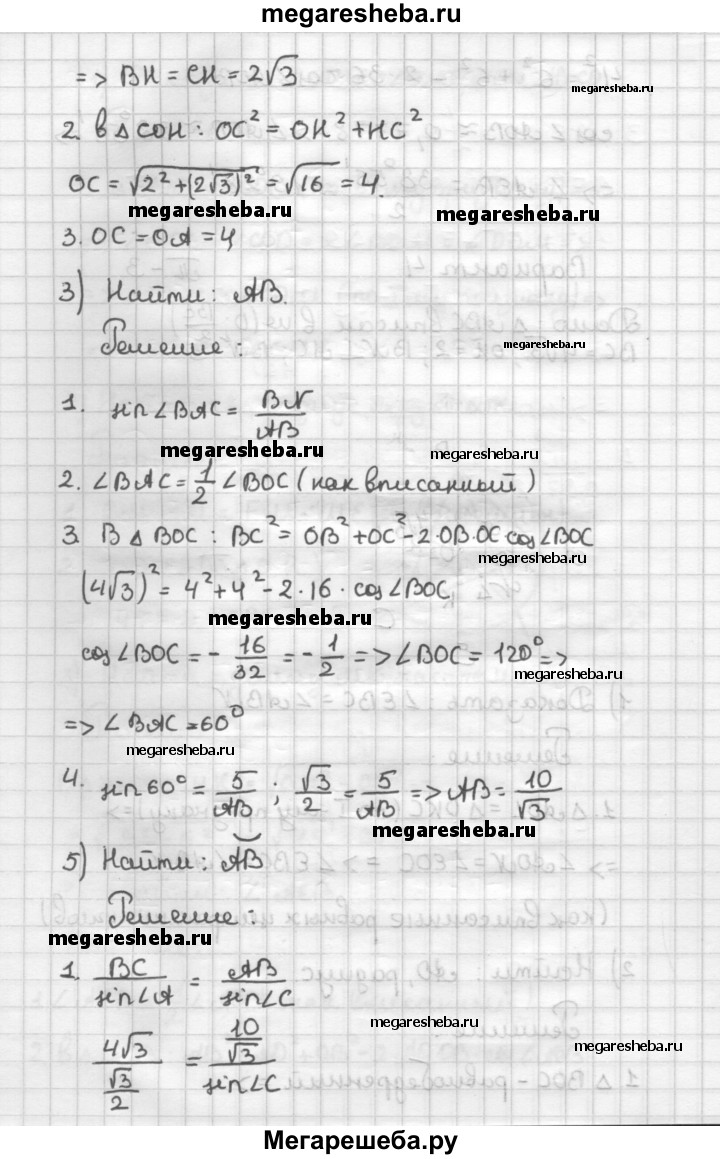 megaresheba.ru
=> BH = CH = 2√3
megaresheba.ru
2. В △ COH : OC² = OH² + HC²
OC = √(2² + (2√3)²) = √16 = 4.
megaresheba.ru
megaresheba.ru
3. OC = OA = 4
3) Найти: AB.
Решение:
megaresheba.ru
1. sin∠BAC = BN/AB
megaresheba.ru
megaresheba.ru
2. ∠BAC = 1/2 ∠BOC (как вписанный)
3. В △ BOC : BC² = OB² + OC² - 2·OB·OC cos∠BOC
megaresheba.ru
(4√3)² = 4² + 4² - 2·16·cos∠BOC
megaresheba.ru
cos∠BOC = - 16/32 = - 1/2 => ∠BOC = 120° =>
megaresheba.ru
=> ∠BAC = 60°
megaresheba.ru
4. sin60° = 5/AB ; √3/2 = 5/AB => AB = 10/√3
megaresheba.ru
5) Найти: AB
Решение:
megaresheba.ru
1. BC/sin∠A = AB/sin∠C
megaresheba.ru
4√3/(√3/2) = (10/√3)/sin∠C
megaresheba.ru
Мегарешеба.ру